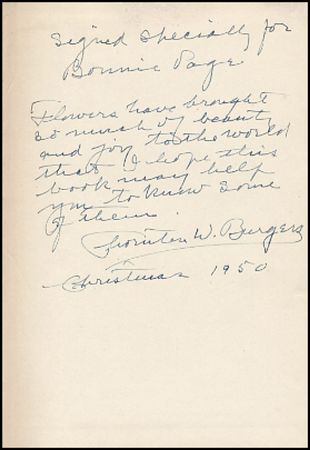 Signed specially for
Bonnie Page
Flowers have brought
so much of beauty
and joy to the world
that I hope this
book may help
you to know some
of them.
Thornton W. Burgess
Christmas 1950